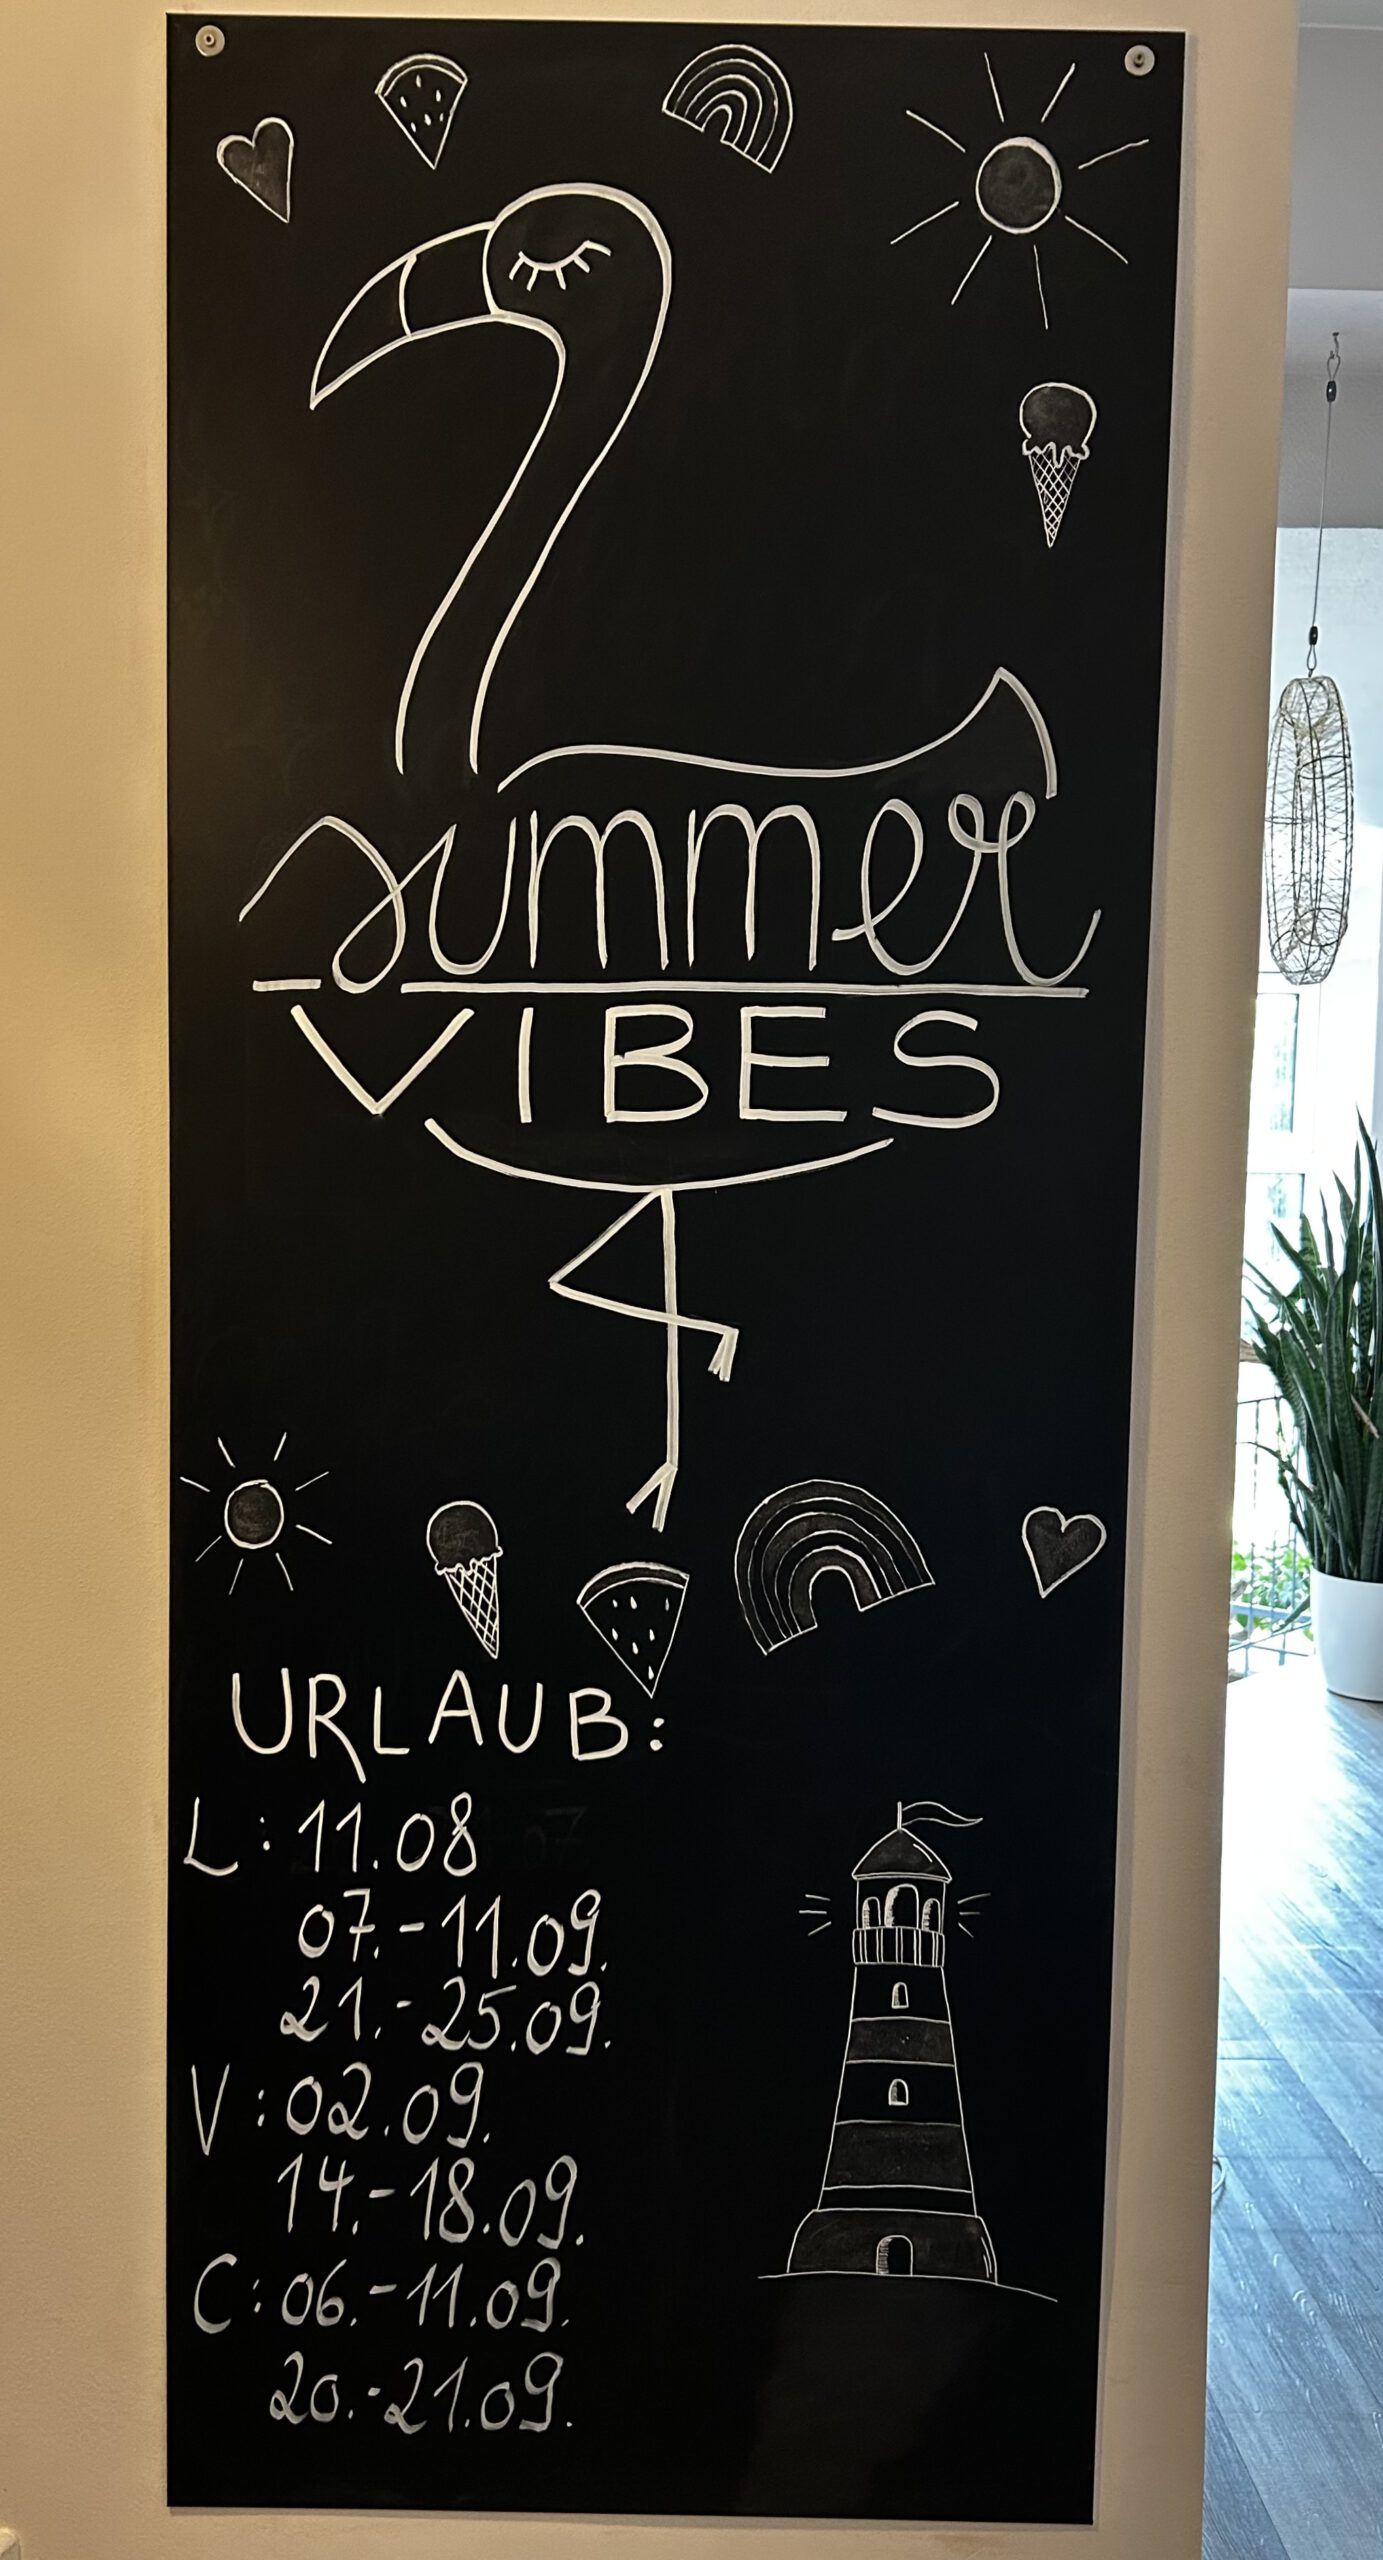 summer
VIBES
URLAUB:
L: 11.08
07.-11.09.
21.-25.09.
V: 02.09.
14.-18.09.
C: 06.-11.09.
20.-21.09.